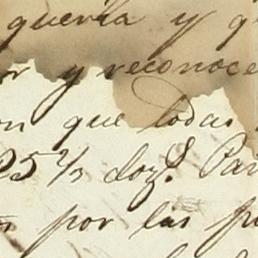 querria y q
or y reconoce
on que todas
25 2/3 doz.s Par
por las p